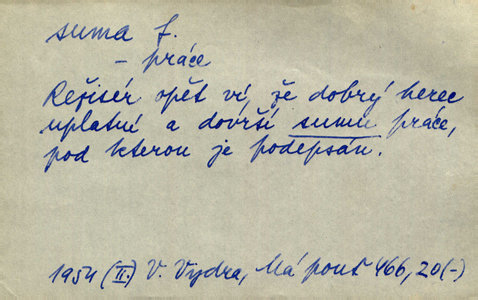 suma f.
– práce
Režisér opět ví, že dobrý herec
uplatní a dovrší sumu práce,
pod kterou je podepsán.
1954 (II.) V. Vydra, Má pouť 466, 20 (–)